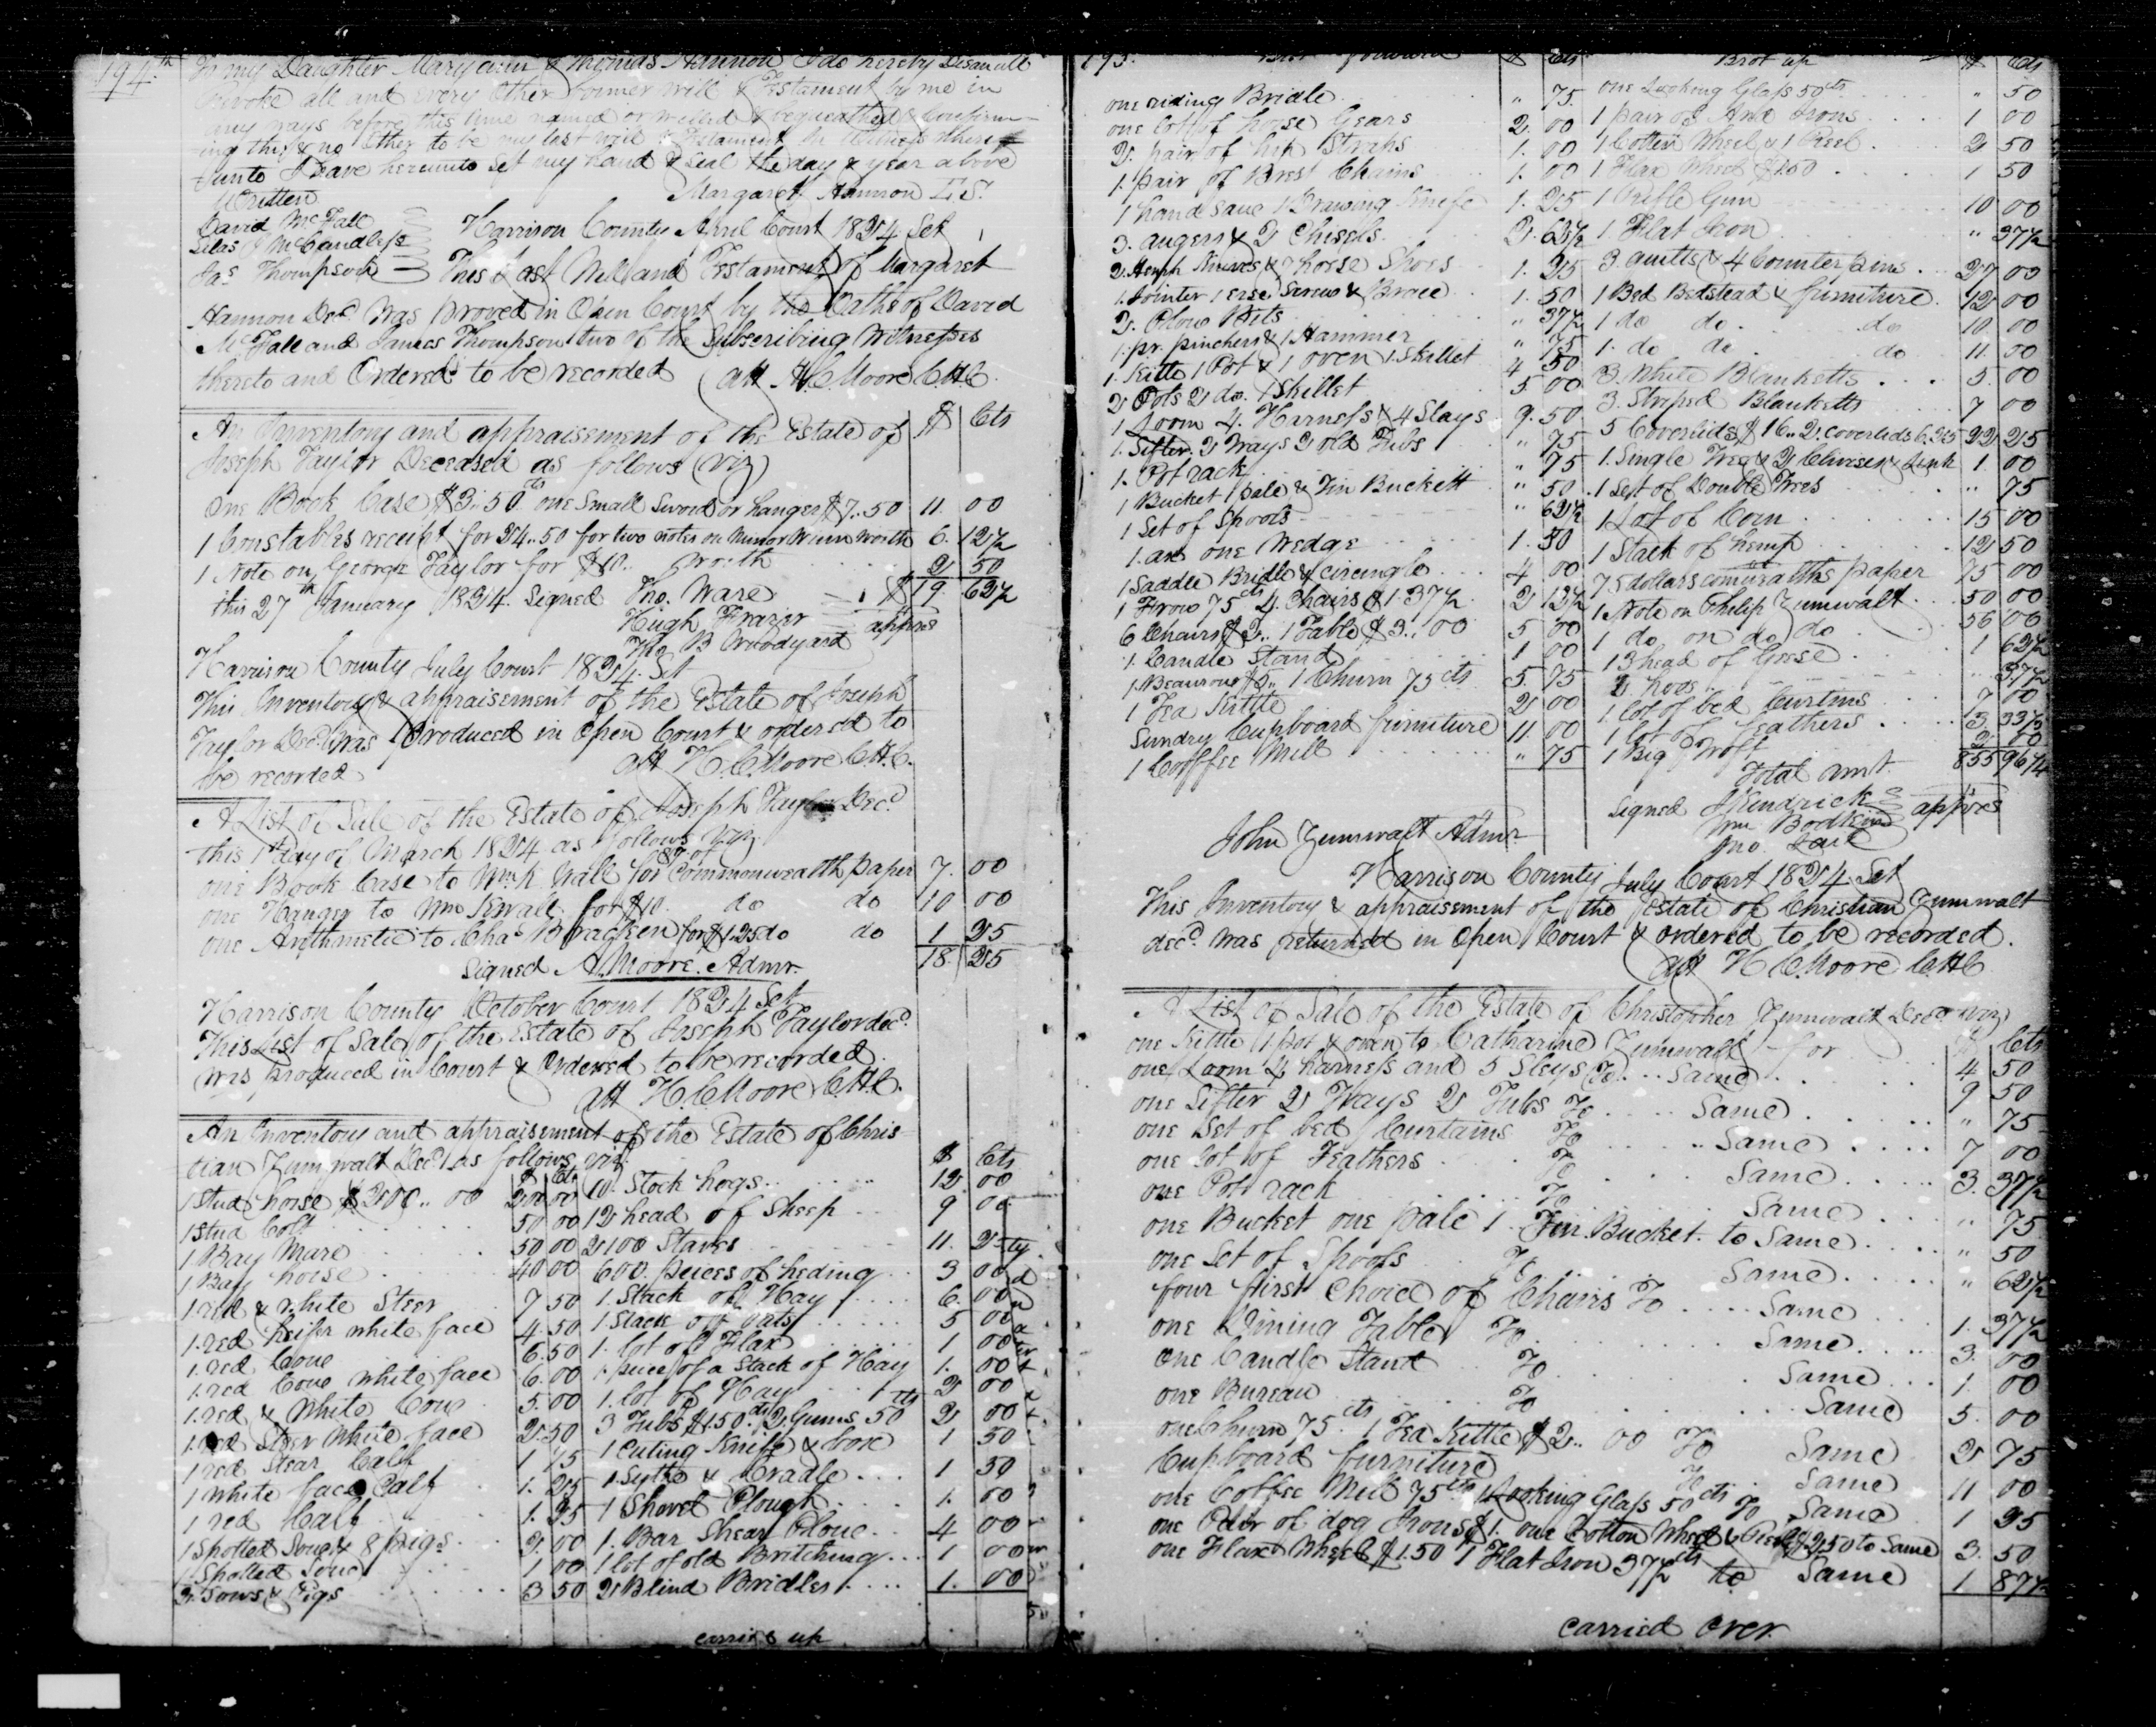 194.th
To my Daughter Maryann & Thomas Hannon I do hereby Disanull
Revoke all and every Other former will & Testament by me in
any ways before this time named or willed & bequeathed & Confirm-
ing this & no Other to be my last will & Testament In Witness where
-unto I Have hereunto Set my hand & Seal the day & year above
Written Margaret Hannon L.S.
David McFall
Silas J McCandless
Jas Thompson
Harrison County April Court 1824 Sct
This Last Will and Testament of Margaret
Hannon Decd Was proved in Open Court by the Oaths of David
McFall and James Thompson two of the Subscribing Witnesses
thereto and Ordered to be recorded Att H C Moore C.H.C.
An Inventory and appraisement of the Estate of $ Cts
Joseph Taylor Deceased as follows (viz)
One Book Case $3.50cts one Small Sword or hanger $7..50 11. 00
1 Constables receipt for 24..50 for two notes on Minor Winn worth 6. 12½
1 Note on George Taylor for $10.. worth 2 50
this 27th January 1824. Signed Tho. Ware $19. 62½
Hugh Frazer apprs
Tho B Woodyard
Harrison County July Court 1824. Sct
This Inventory & appraisement of the Estate of Joseph
Taylor Decd Was Produced in Open Court & ordered to
be recorded Att H. C. Moore C.H.C.
A List of Sale of the Estate of Joseph Taylor Decd
this 1st day of March 1824 as follows Viz
one Book Case to Wm K Wall for $7.00 Commonwealth paper 7. 00
one Hanger to Wm K Wall for $10. do do 10 00
one Arithmetic to Chas Bracken for $1.25 do do 1 25
Signed A. Moore. Admr. 18. 25
Harrison County October Court 1824 Sct
This List of Sale of the Estate of Joseph Taylor decd.
Was produced in Court & Ordered to be recorded.
Att H. C. Moore C.H.C.
An Inventory and appraisement of the Estate of Chris-
tian Zumwalt Decd as follows viz. $ Cts
1 Stud horse $200.. 00 200 00 10. Stock hogs.. 12 00
1 Stud Colt 50 00 12 head of Sheep 9 00
1 Bay Mare 50 00 2100 Staves 11. 25
1 Bay horse 40 00 600. pieces of heding 3 00
1. red & white Steer 7 50 1. Stack of Hay 6. 00
1. red heifer white face 4. 50 1. Stack of Oats 5 00
1. red Cow 6. 50 1. lot of Flax 1 00
1. red Cow white face 6. 00 1. piece of a Stack of Hay 1. 00
1. red & White Cow 5. 00 1. lot of Hay 2 00
1. red Steer White face 2. 50 3 Tubs $1.50cts 2 Gums 50cts 2 00
1 red Stear Calf 1 75 1 Cuting Knife & box 1 50
1 White face Calf 1. 25 1. Sythe & Cradle 1 50
1 red Calf 1. 25 1 Shovel Plough 1. 00
1 Spotted Sow & 8 pigs 2. 00 1. Bar Shear Plow 4 00
1 Spotted Sow 1 00 1 lot of old Britching 1 00
3. Sows & Pigs 3 50 2 Blind Bridles 1. 00
carried up
195. Brot forward $ Cts
one riding Bridle " 75
one lot of horse Gears 2. 00
2. pair of hip Straps 1. 00
1. pair of Brest Chains 1. 00
1 hand saw 1 Drawing Knife 1. 25
3. augers & 2 Chisels 2. 62½
2. Hemph Knives & 7 horse Shoes 1. 25
1. Jointer 1 Screw & Brace 1. 50
2. Plow Bits " 37½
1. pr. pinchers & 1 Hammer " 75
1. Kettle 1 Pot & 1 oven 1. Skillet 4 50
2 Pots 2 do. 1 Skillet 5 00
1 Loom 4. Harness & 4 Slays 9. 50
1. Sifter. 2 Trays 2 old Tubs " 75
1. Pot rack " 75
1 Bucket 1 pale & Tin Buckett " 50
1 Set of Spools " 62½
1. axe one Wedge 1. 50
1 Saddle Bridle & circingle 4 00
1 Frow 75cts 4. Chairs $1.37½ 2 12½
6 Chairs $2.. 1 Table $3..00 5 00
1. Candle Stand 1 00
1. Beaurow $5.. 1 Churn 75cts 5. 75
1 Tea Kittle 2 00
Sundry Cupboard furniture 11. 00
1 Cooffee Mill " 75
Brot up $ Cts
one Looking Glass 50cts " 50
1 pair of And Irons 1 00
1 Cotten Wheel & 1 Reel 2 50
1 Flax Wheel $1.50 1 50
1 Rifle Gun 10 00
1 Flat Iron " 37½
3. quilts & 4 Counterpins 27 00
1 Bed Betstead & furniture. 12 00
1 do do. do 10 00
1. do do do 11. 00
3. White Blanketts 5. 00
3. Striped Blanketts 7 00
5 Coverlids $16.. 2. Coverlids 6.25 22 25
1. Single Tree & 2 Clivises & Link 1. 00
1 Set of Double Trees " 75
1. Lot of Corn 15 00
1 Stack of hemp 12 50
75 dollars comwealths paper 75 00
1. Note on Philip Zumwalt 50 00
1 do on do do 56 00
13 head of Geese 1 62½
2 hoes " 37½
1. lot of bed Curtins 7 00
1 lot of feathers 3. 37½
1 Big Troft
Total amt. 855 96¼
Signed J Kendrick
Wm Bodkin apprs
Jno. Lair
John Zumwalt Admr
Harrison County July Court 1824. Sct
This Inventory & appraisement of the Estate of Christian Zumwalt
decd. Was returned in Open Court & ordered to be recorded.
Att H C Moore C.H.C
A List of Sale of the Estate of Christopher Zumwalt Decd viz
one Kittle 1 pot & oven to Catharine Zumwalt for $ Cts 4 50
one Loom 4 harness and 5 Sleys To Same 9 50
one Sifter 2 Trays 2 Tubs To Same " 75
one Set of bed Curtains To Same 7 00
one lot of Feathers To Same 3. 37½
one Pot rack To Same " 75
one Bucket one pale 1 Tin Bucket. to Same " 50
one Set of Spools To Same " 62½
four first Choice of Chairs To Same 1. 37½
one Dining Table To Same 3. 00
one Candle Stand To Same 1. 00
one Bureau To Same 5. 00
one Churn 75cts. 1 Tea Kittle $2.. 00 To Same 2 75
Cupboard furniture To Same 11 00
one Coffee Mill 75cts 1 Looking Glass 50cts To Same 1 25
one Pair of dog Irons $1. one Cotton Wheel & Reel $2.50 to Same 3. 50
one Flax Wheel $1.50 1 Flat Iron 37½cts to Same 1 87½
carried over